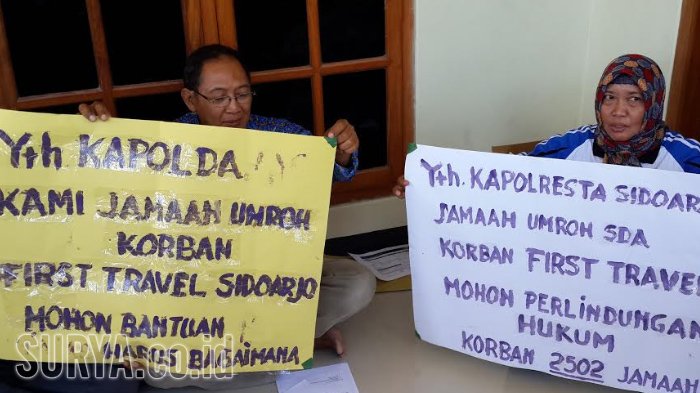 Yth KAPOLDA !!
KAMI JAMAAH UMROH
KORBAN
FIRST TRAVEL SIDOARJO
MOHON BANTUAN
HARUS BAGAIMANA
Yth. KAPOLRESTA SIDOAR
JAMAAH UMROH SDA
KORBAN FIRST TRAVEL
MOHON PERLINDUNGAN
HUKUM
KORBAN 2502 JAMAAH
SURYA.co.id